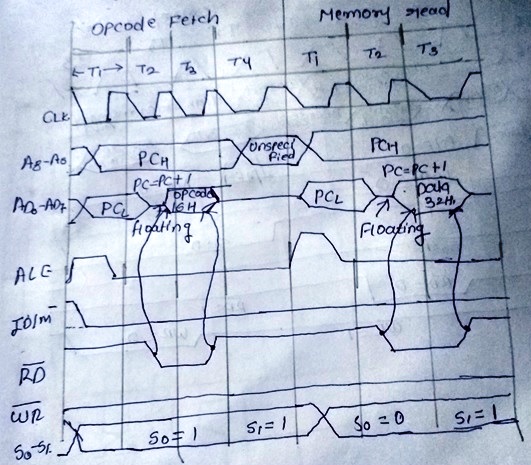 Opcode Fetch Memory Read
T1 T2 T3 T4 T1 T2 T3
CLK
A8-A0 PCH Unspeci fied PCH
PC=PC+1 PC=PC+1
AD0-AD7 PCL opcode 16H PCL Data 32H
Floating Floating
ALE
IO/M
RD
WR
S0-S1 S0=1 S1=1 S0=0 S1=1